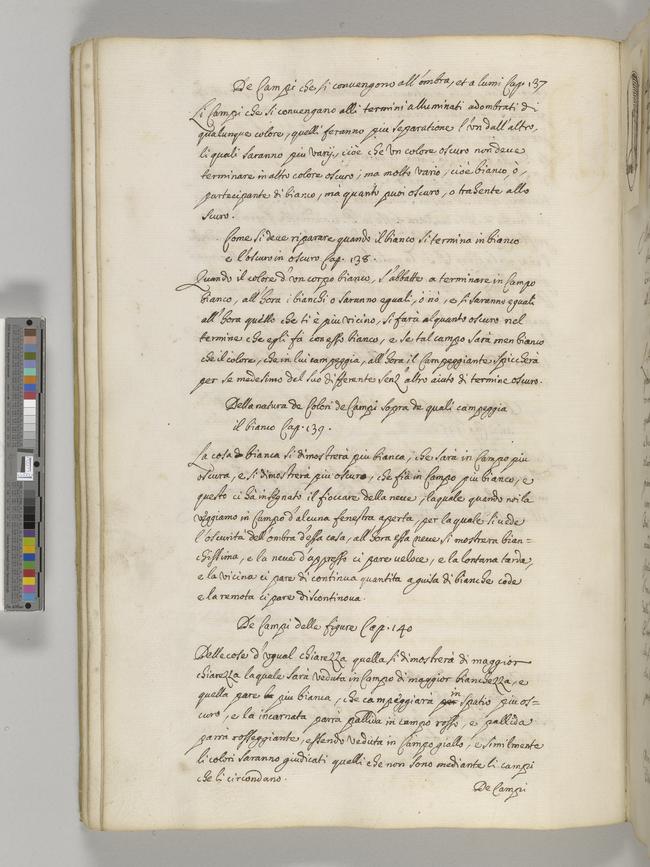 De Campi che si convengono all'ombra, et a lumi Cap. 137
Li Campi che si convengano alli termini alluminati adombrati di
qualunque colore, quelli feranno piu separatione l'un dall'altro,
li quali saranno piu varij, cioè che un colore oscuro non deve
terminare in altro colore oscuro; ma molto vario, cioè bianco, o,
partecipante di bianco, mà quanto puoi oscuro, o trahente allo
scuro.
Come si deve riparare quando il bianco si termina in bianco
e l'oscuro in oscuro Cap. 138.
Quando il colore d'un corpo bianco, s'abbatte a terminare in Campo
bianco, all'hora i bianchi o saranno eguali, ò nò, e si saranno eguali
all'hora quello che ti è piu vicino, si farà alquanto oscuro nel
termine che egli fà con esso bianco, e se tal campo sarà men bianco
che il colore, che in lui campeggia, all'hora il Campeggiante spiccherà
per se medesimo del suo differente senz'altro aiuto di termine oscuro.
Della natura de Colori de Campi sopra de quali campeggia
il bianco Cap. 139.
La cosa bianca si dimostrerà piu bianca, che sarà in Campo piu
oscura, e si dimostrerà piu oscura, che fia in Campo piu bianco, e
questo ci hà insegnato il fioccare della neve, laquale quando noi la
veggiamo in Campo d'alcuna fenestra aperta, per la quale si vede
l'oscurità dell'ombra d'essa casa, all'hora essa neve si mostrera bian=
chissima, e la neve d'appresso ci pare veloce, e la lontana tarda,
e la vicina ci pare di continua quantita a guisa di bianche code
e la remota ci pare discontinova.
De Campi delle figure Cap. 140
Delle cose d'ugual chiarezza quella si dimostrerà di maggior
chiarezza laquale sarà veduta in Campo di maggior bianchezza, e
quella pare piu bianca, che campeggiarà in spatio piu os=
curo, e la incarnata parrà pallida in campo rosso, e pallida
parrà rosseggiante, essendo veduta in Campo giallo, e similmente
li colori saranno giudicati quelli che non sono mediante li campi
che li circondano.
De Campi